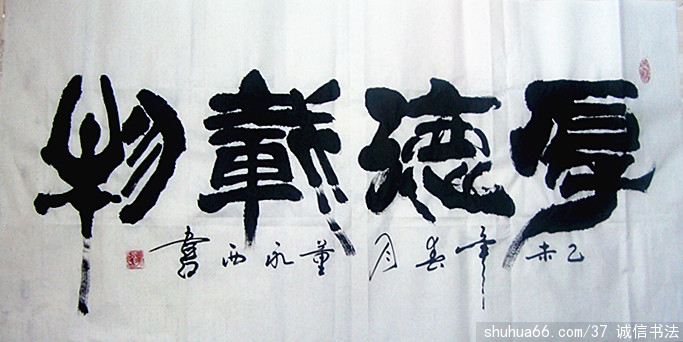 厚德載物
乙未年春月董永西書
shuhua66.com/37 诚信书法